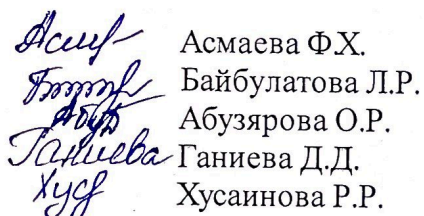 Асмаева Ф.Х.
Байбулатова Л.Р.
Абузярова О.Р.
Ганиева Ганиева Д.Д.
Хусаинова Р.Р.